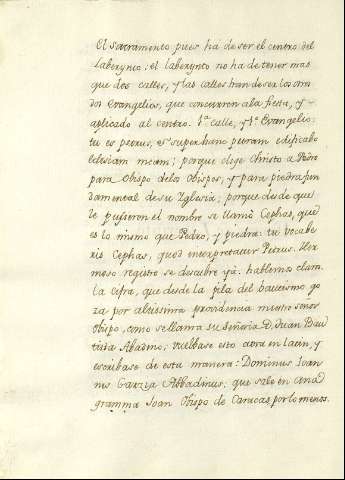 El sacramento pues há de ser el centro del
laberynto; el laberynto no ha de tener mas
que dos calles, y las calles han de ser los
dos Evangelios, que concurren a la fiesta, y
aplicado al centro. 1ª calle, y 1º Evangelio:
tu es petrus, et super hanc petram edificabo
eclesiam meam; porque elige Christo a Pedro
para Obispo de los Obispos, y para piedra fun
damental de su Yglesia; porque desde que
le pusieron el nombre se llamó Cephas, que
es lo mismo que Pedro, y piedra: tu vocabe
ris Cephas, quod interpretatur Petrus. Her
moso registro se descubre yá: hablemos clara
la cifra, que desde la pila del bautismo go
za por altissima providencia nuestro señor
Obispo, como se llama su señoria D. Juan Bau
tista Abadino; vuelbase esto aora en latin, y
escribase de esta manera: Dominus Ioan
nes Garzia Abbadinus: que sale en ana
gramma Joan Obispo de Caracas por lo menos.